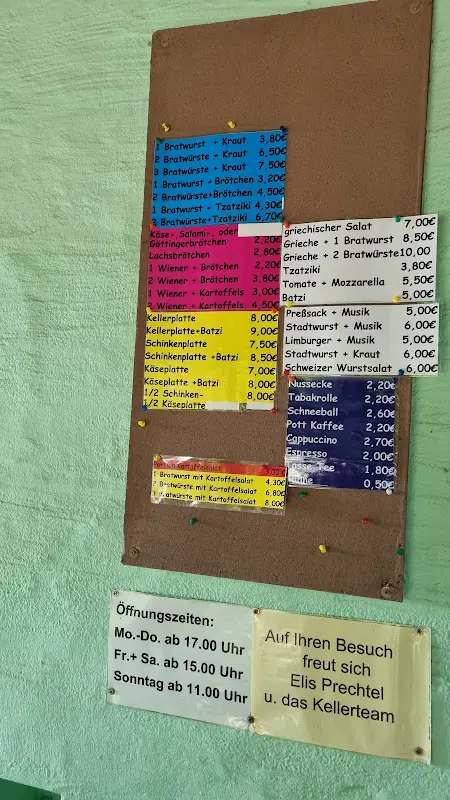 1 Bratwurst + Kraut 3,80€
2 Bratwürste + Kraut 6,50€
3 Bratwürste + Kraut 7,50€
1 Bratwurst + Brötchen 3,20€
2 Bratwürste+Brötchen 4,50€
1 Bratwurst + Tzatziki 4,30€
2 Bratwürste+Tzatziki 6,70€
Käse-,Salami-, oder
Göttingerbrötchen 2,20€
Lachsbrötchen 2,80€
1 Wiener + Brötchen 2,20€
2 Wiener + Brötchen 3,80€
1 Wiener + Kartoffels. 3,00€
2 Wiener + Kartoffels. 4,50€
Kellerplatte 8,00€
Kellerplatte+Batzi 9,00€
Schinkenplatte 7,50€
Schinkenplatte +Batzi 8,50€
Käseplatte 7,00€
Käseplatte +Batzi 8,00€
1/2 Schinken- 8,00€
1/2 Käseplatte
griechischer Salat 7,00€
Grieche + 1 Bratwurst 8,50€
Grieche + 2 Bratwürste10,00
Tzatziki 3,80€
Tomate + Mozzarella 5,50€
Batzi 5,00€
Preßsack + Musik 5,00€
Stadtwurst + Musik 6,00€
Limburger + Musik 5,00€
Stadtwurst + Kraut 6,00€
Schweizer Wurstsalat 6,00€
Nussecke 2,20€
Tabakrolle 2,20€
Schneeball 2,60€
Pott Kaffee 2,20€
Cappuccino 2,70€
Espresso 2,00€
Tasse Tee 1,80€
0,50€
Kartoffelsalat
1 Bratwurst mit Kartoffelsalat 4,30€
2 Bratwürste mit Kartoffelsalat 6,80€
3 Bratwürste mit Kartoffelsalat 8,00€
Öffnungszeiten:
Mo.-Do. ab 17.00 Uhr
Fr.+ Sa. ab 15.00 Uhr
Sonntag ab 11.00 Uhr
Auf Ihren Besuch
freut sich
Elis Prechtel
u. das Kellerteam